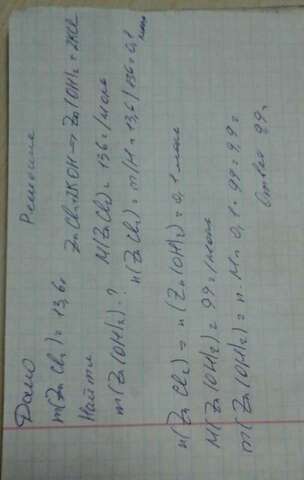 Дано
m(ZnCl₂) = 13,6г
Найти
m(Zn(OH)₂)-?
Решение
ZnCl₂+2KOH → Zn(OH)₂ + 2KCl
M(ZnCl₂) = 136 г/моль
n(ZnCl₂) = m/M = 13,6/136 = 0,1 моль
n(ZnCl₂) = n(Zn(OH)₂) = 0,1 моль
M(Zn(OH)₂) = 99 г/моль
m(Zn(OH)₂) = n·M = 0,1·99 = 9,9 г
Ответ 9,9г